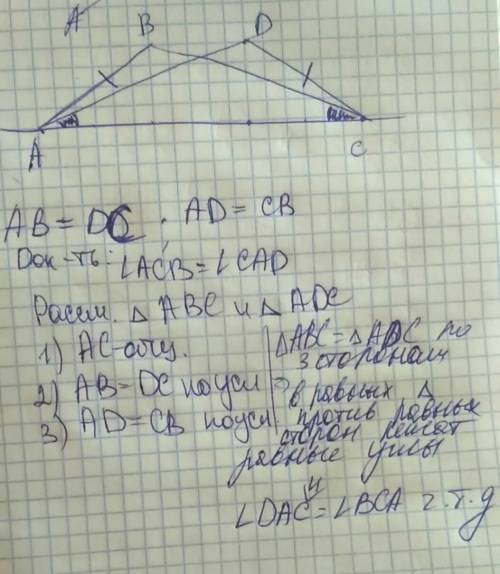 A
B D
A C
AB = DC, AD = CB
Док-ть: ∠ACB = ∠CAD
Рассм. △ ABC и △ ADC
1) AC-общ.
2) AB = DC по усл
3) AD = CB по усл
△ABC = △ADC по
3 сторонам
⇒
в равных △
против равных
сторон лежат
равные углы
⇓
∠DAC = ∠BCA ч.т.д